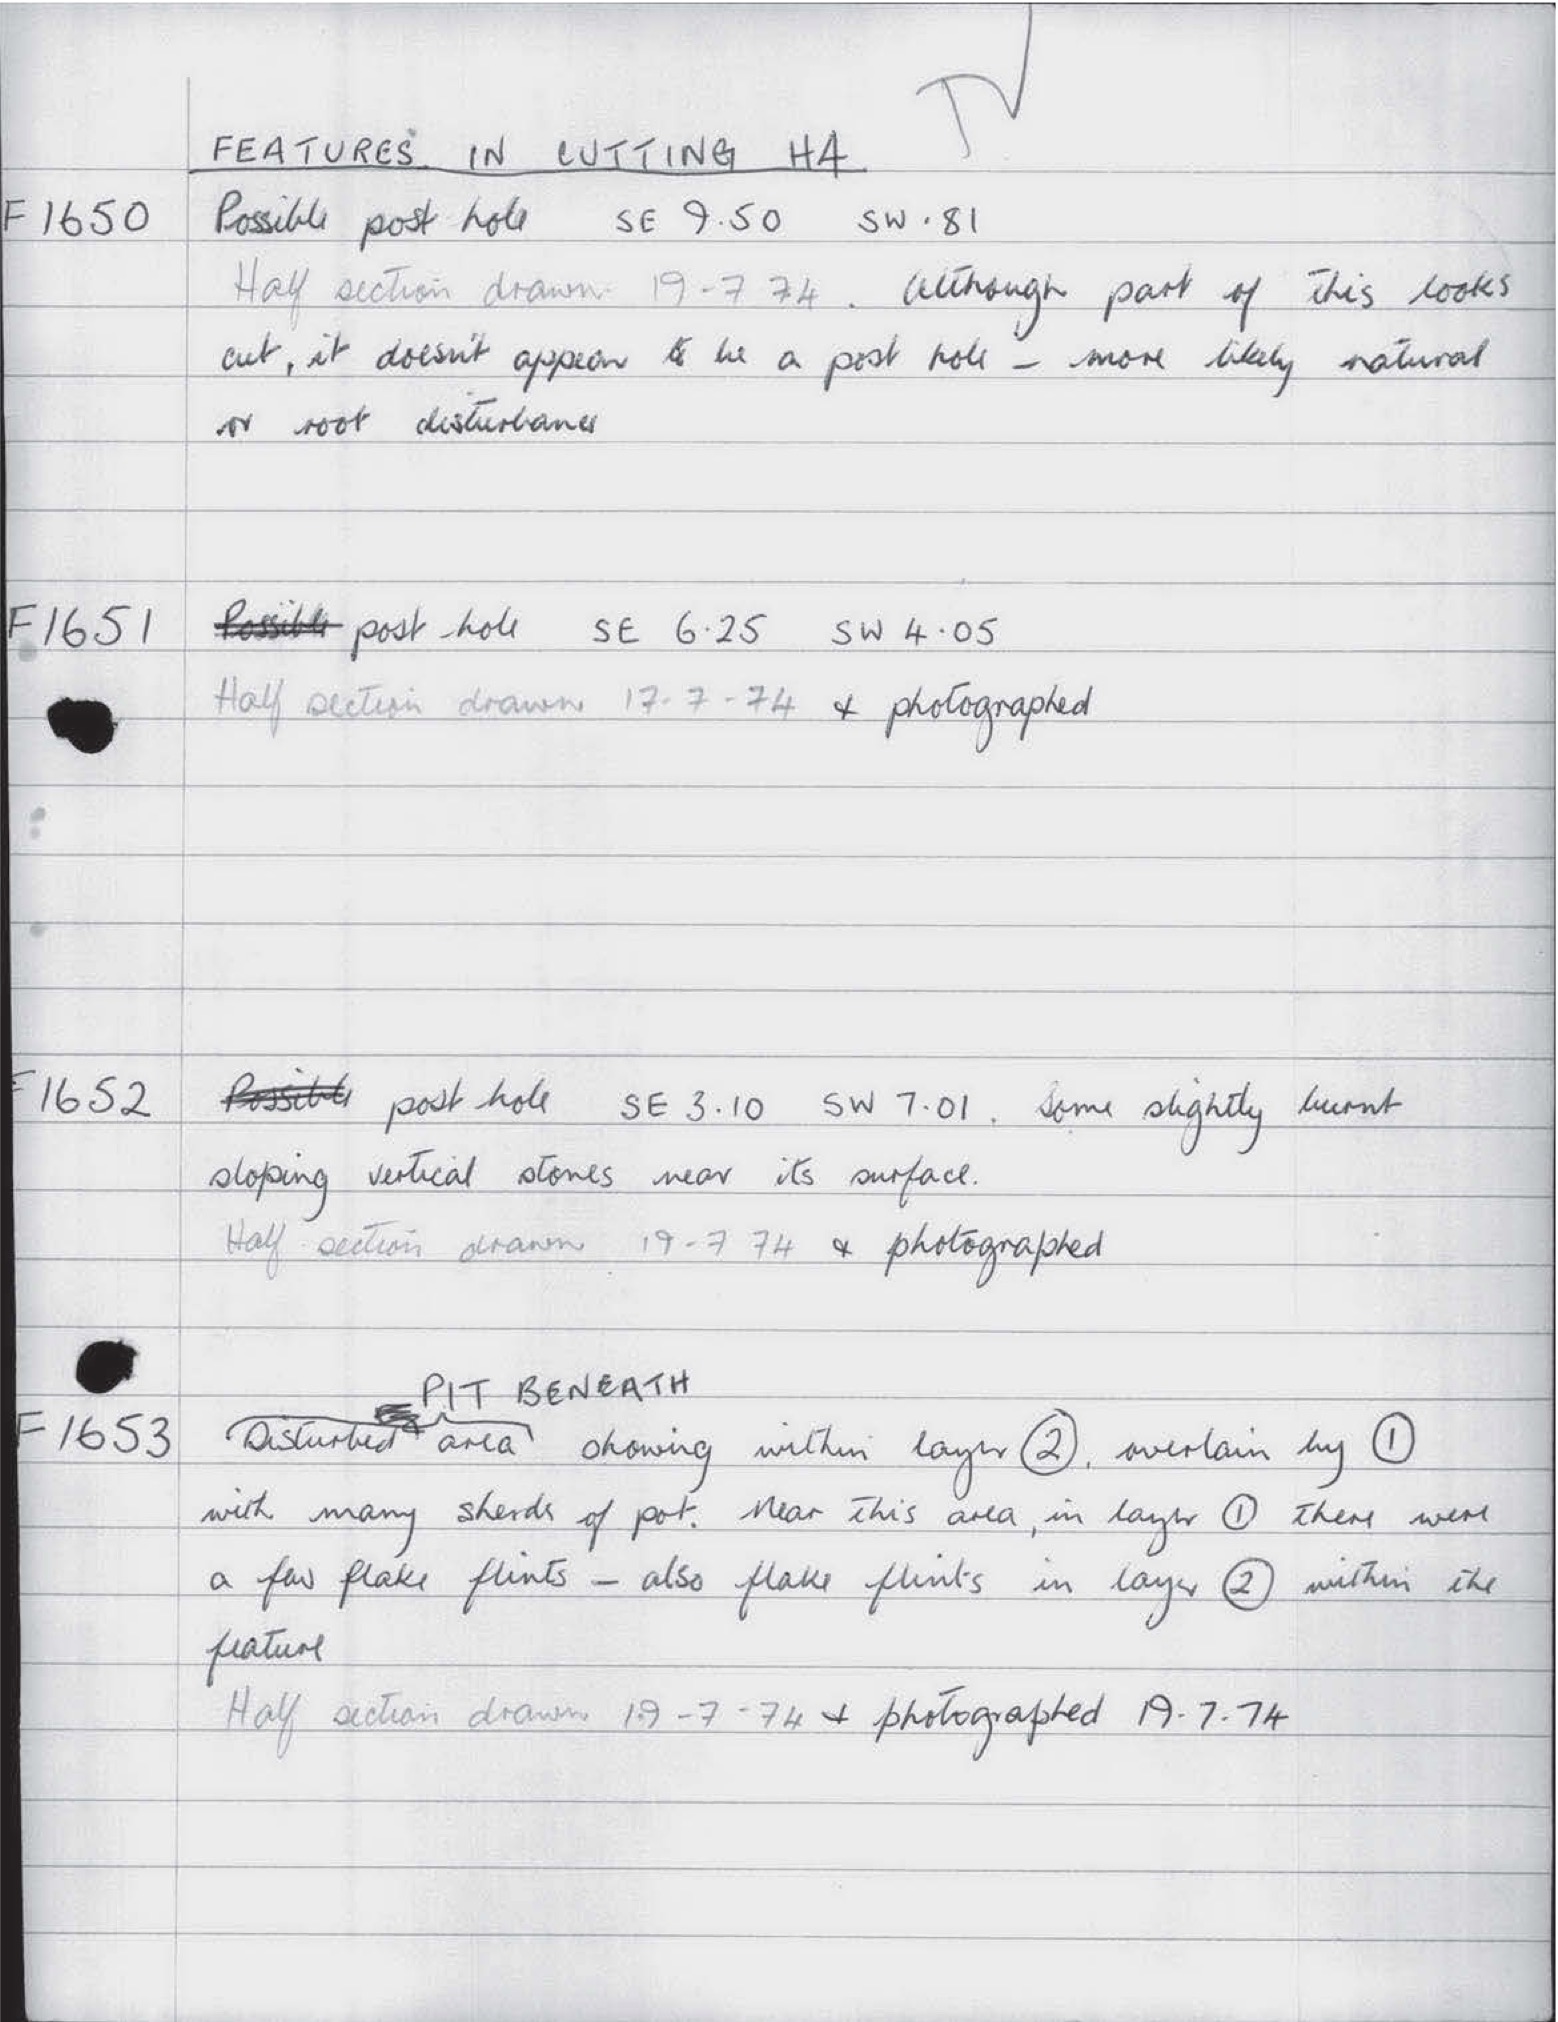 FEATURES IN CUTTING H4
F1650 Possible post hole SE 9.50 SW .81
Half section drawn 19-7 74. Although part of this looks
cut, it doesn't appear to be a post hole – more likely natural
or root disturbance
F1651 Possible post hole SE 6.25 SW 4.05
Half section drawn 17-7-74 & photographed
F1652 Possible post hole SE 3.10 SW 7.01. Some slightly burnt
sloping vertical stones near its surface.
Half section drawn 19-7 74 & photographed
PIT BENEATH
F1653 Disturbed area showing within layer ②, overlain by ①
with many sherds of pot. Near this area, in layer ① there were
a few flake flints – also flake flints in layer ② within the
feature
Half section drawn 19-7-74 & photographed 19.7.74